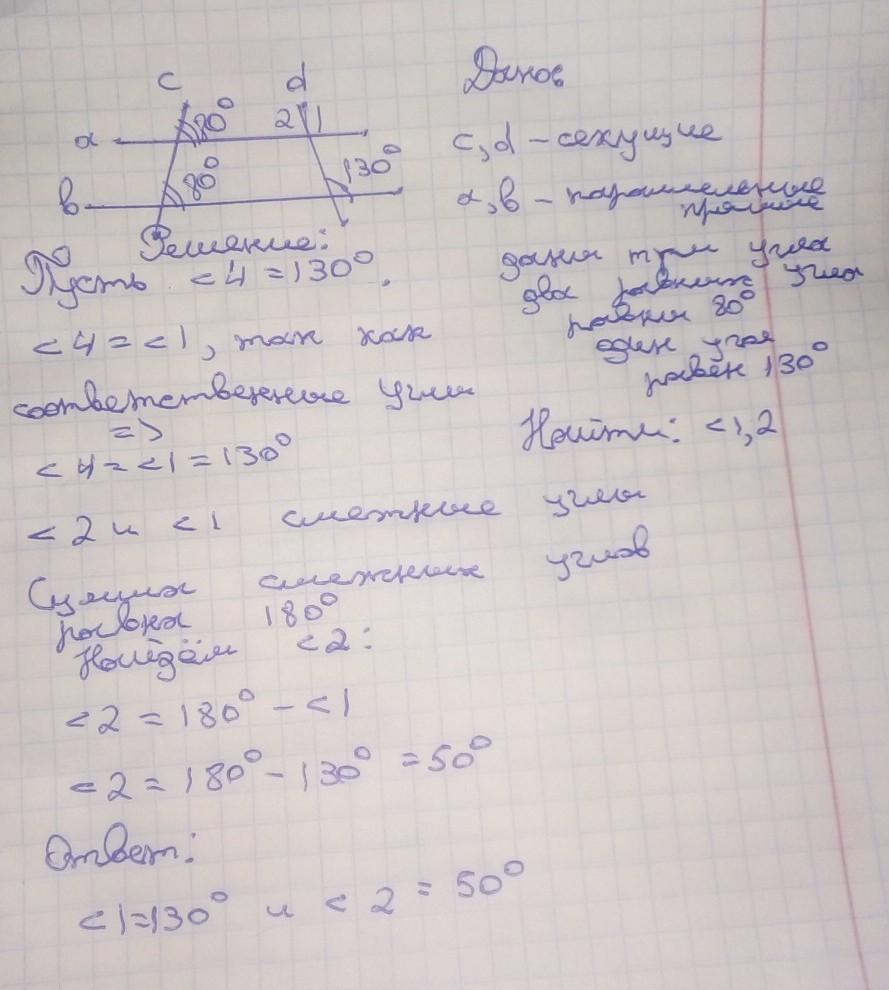 c d
a 80° 2 1
b 80° 130°
Дано:
c, d – секущие
a, b – параллельные
прямые
даны три угла
два равных угла
равны 80°
один угол
равен 130°
Найти: <1,2
Решение:
Пусть <4 = 130°.
<4 = <1, так как
соответственные углы
=>
<4 = <1 = 130°
<2 и <1 смежные углы
Сумма смежных углов
равна 180°
Найдём <2:
<2 = 180° – <1
<2 = 180° – 130° = 50°
Ответ:
<1=130° и <2 = 50°